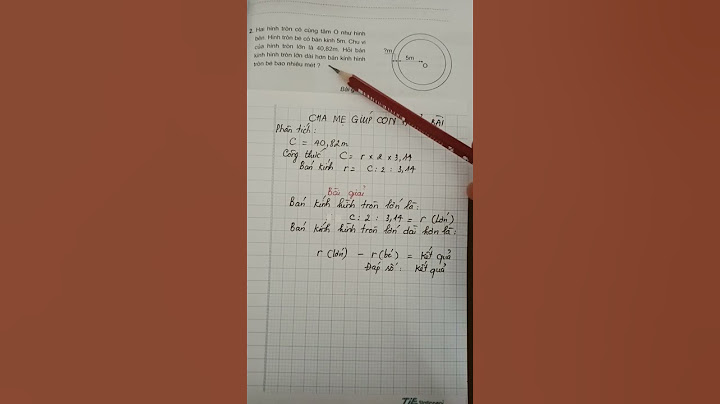 2. Hai hình tròn có cùng tâm O như hình
bên. Hình tròn bé có bán kính 5m. Chu vi
của hình tròn lớn là 40,82m. Hỏi bán
kính hình tròn lớn dài hơn bán kính hình
tròn bé bao nhiêu mét ?
?m
5m
O
Bài
CHA MẸ GIÚP CON BÀI
Phân tích :
C = 40,82m
Công thức C = r x 2 x 3,14
Bán kính r = C : 2 : 3,14
Bài giải
Bán kính hình tròn lớn là :
C : 2 : 3,14 = r (lớn)
Bán kính hình tròn lớn dài hơn là :
r (lớn) - r (bé) = kết quả
Đáp số : kết quả